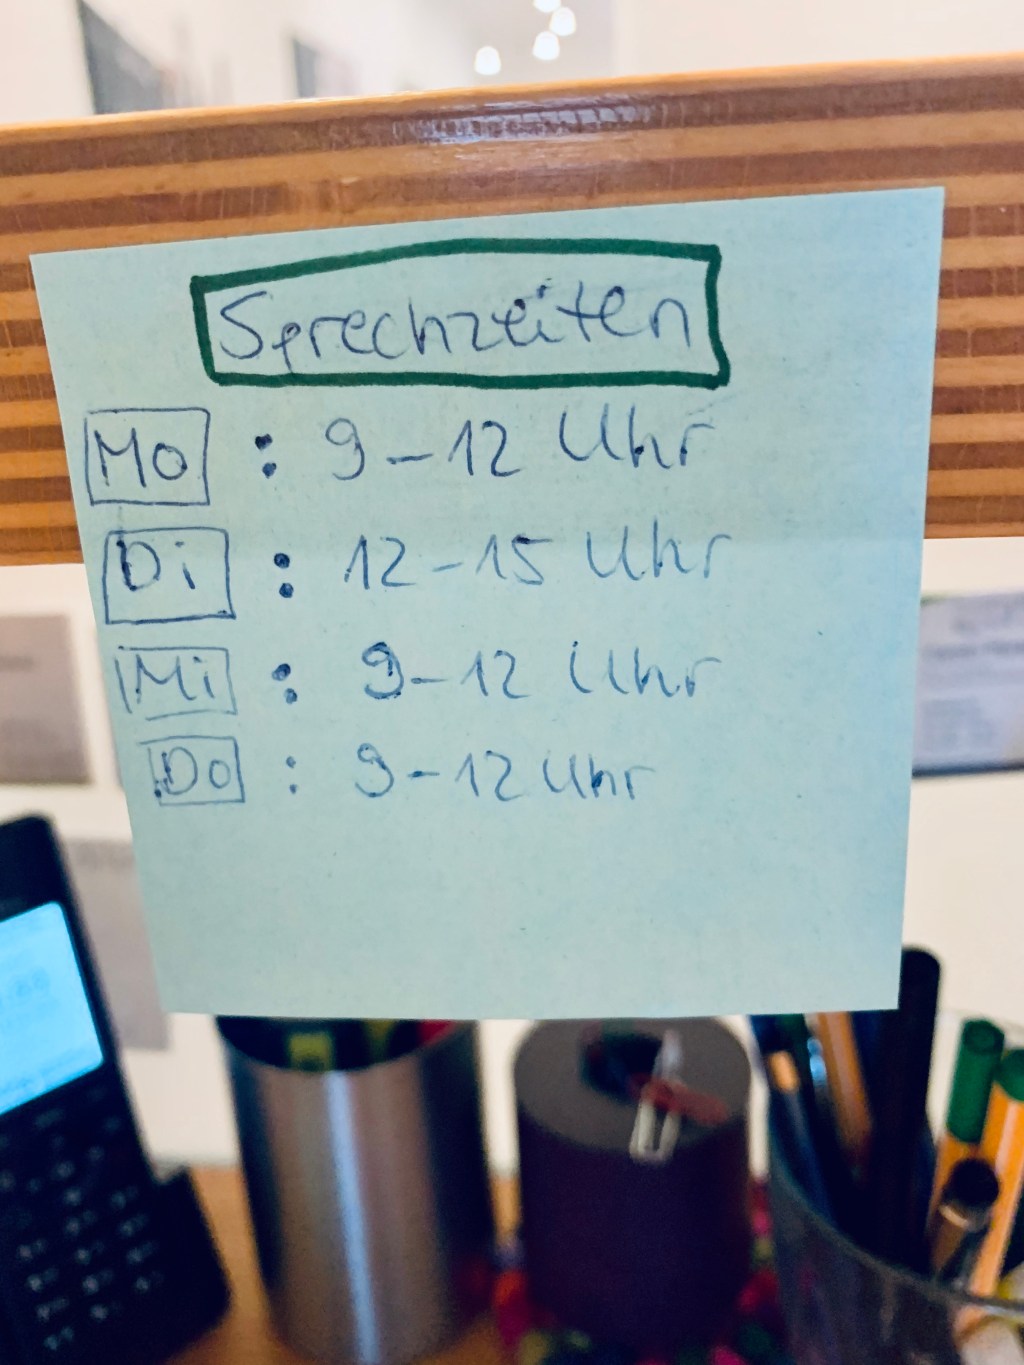 Sprechzeiten
Mo : 9-12 Uhr
Di : 12-15 Uhr
Mi : 9-12 Uhr
Do : 9-12 Uhr